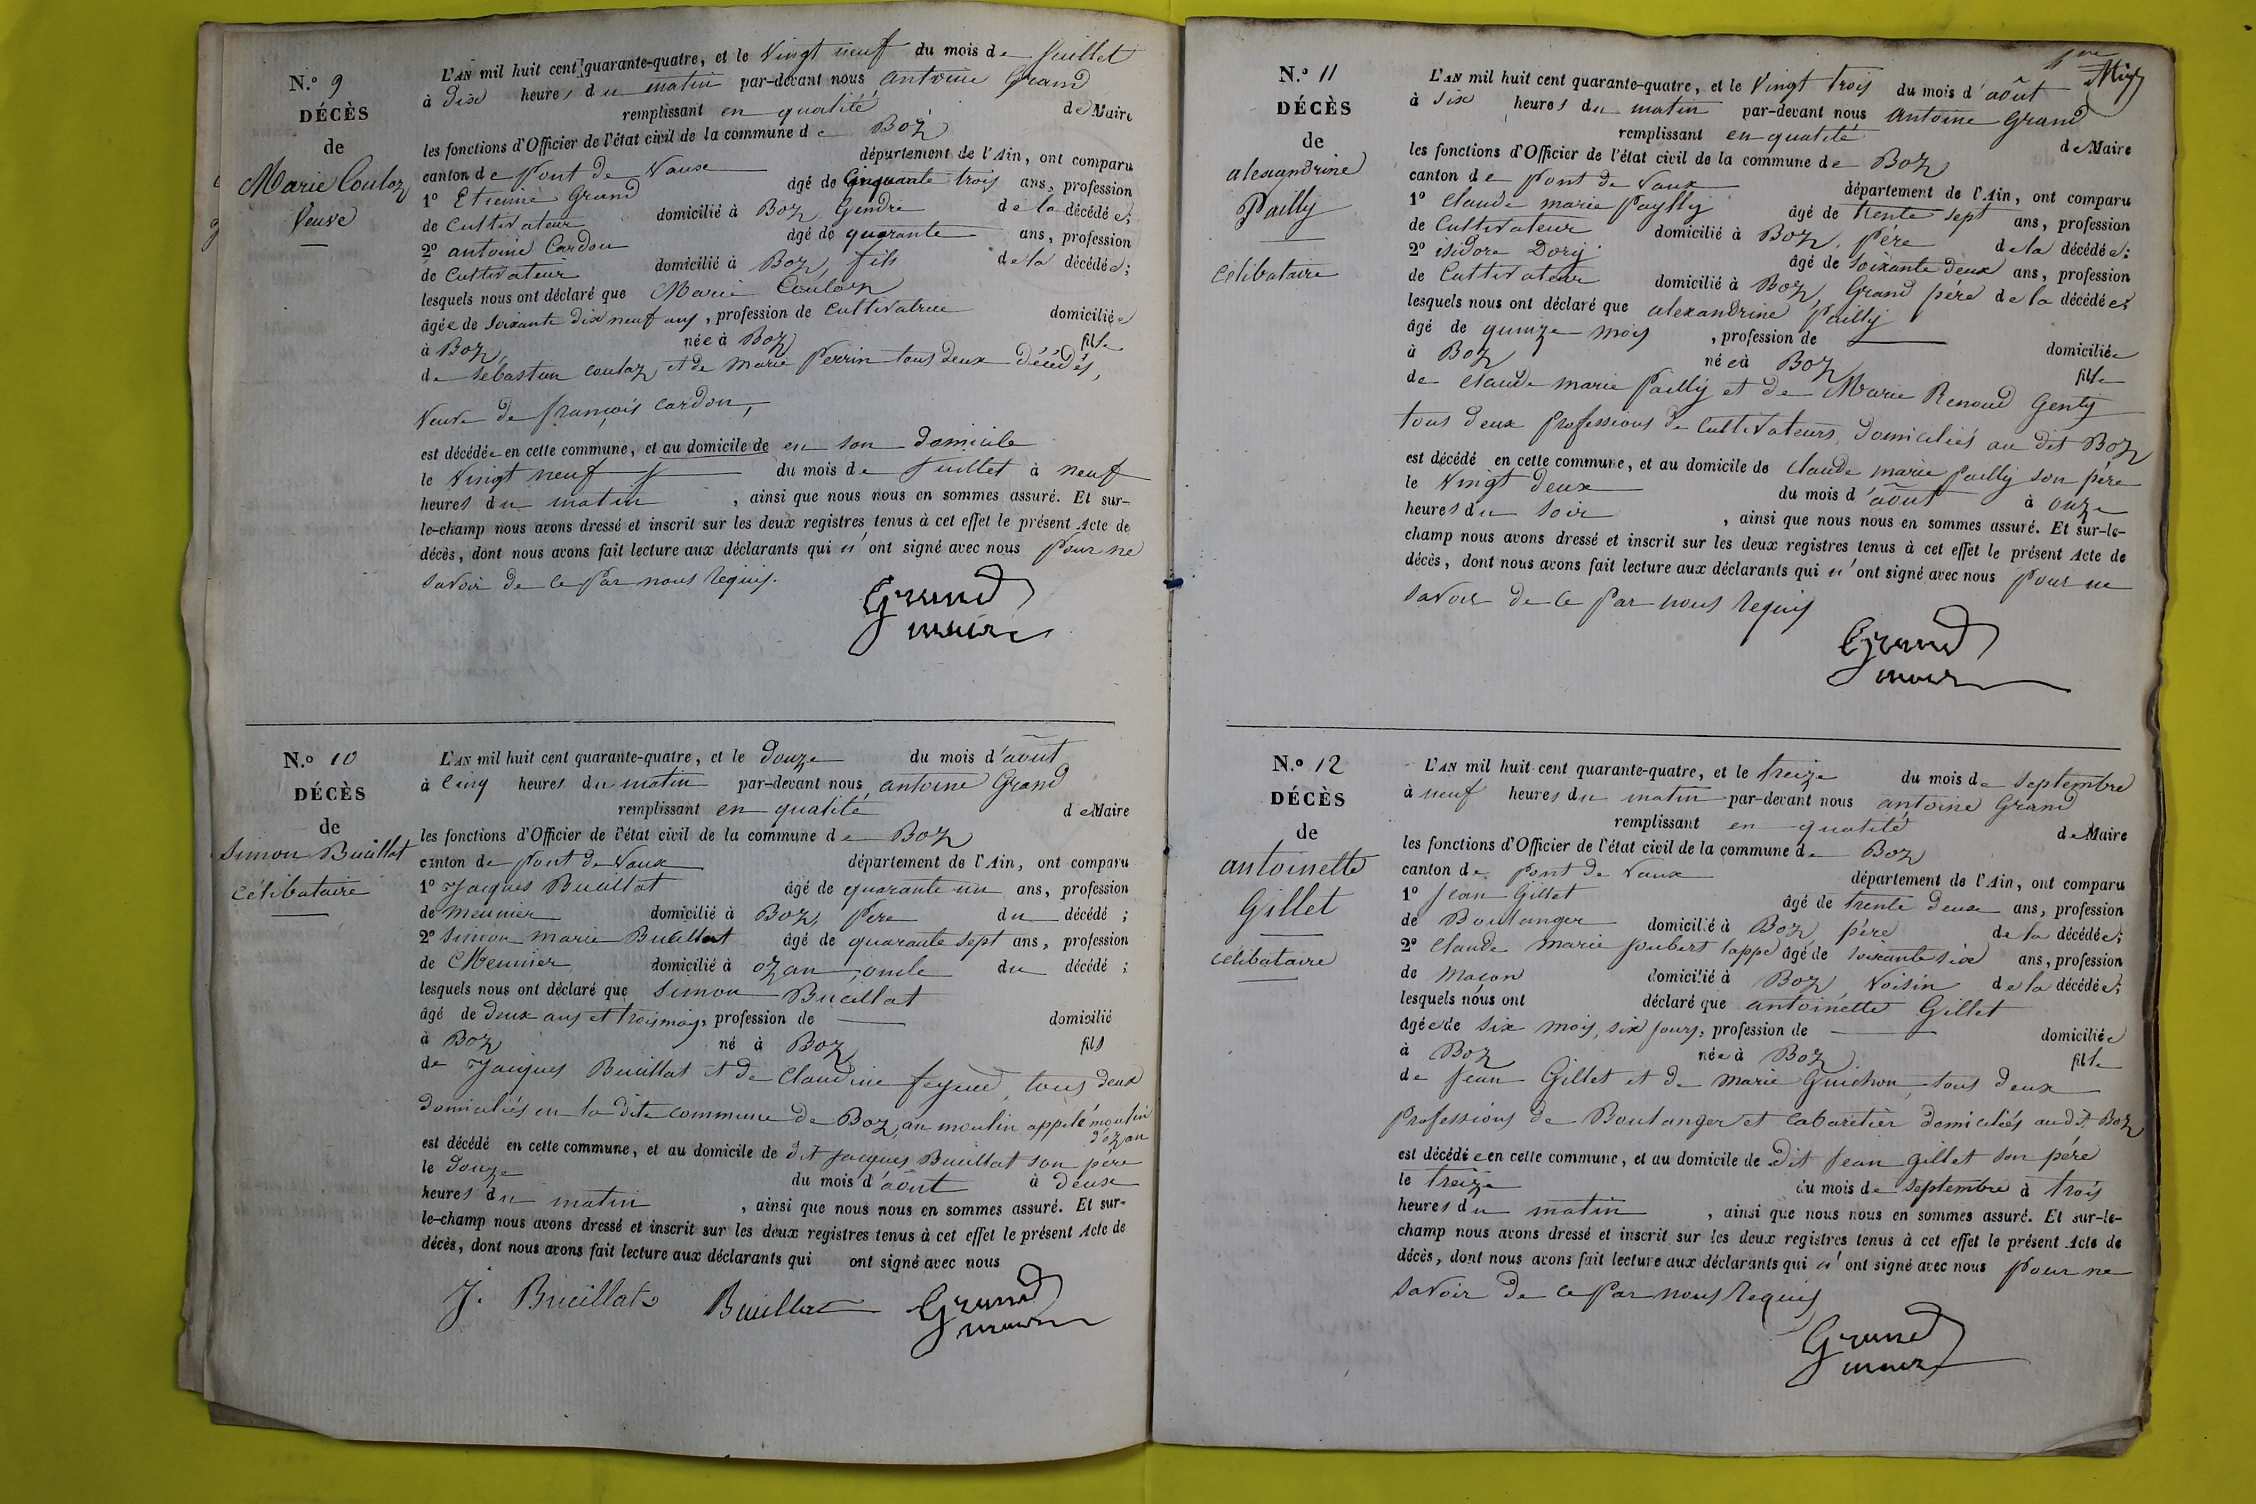 N.º 9
DÉCÈS
de
Marie Couloz
Veuve
L'AN mil huit cent quarante-quatre, et le Vingt neuf du mois de Juillet
à dix heures du matin par-devant nous antoine Grand
remplissant en qualité de Maire
les fonctions d'Officier de l'état civil de la commune de Boz
canton de Pont de Vaux département de l'Ain, ont comparu
1º Etienne Grand âgé de Cinquante trois ans, profession
de Cultivateur domicilié à Boz, Gendre de la décédée;
2º antoine Cardon âgé de quarante ans, profession
de Cultivateur domicilié à Boz, fils de la décédée;
lesquels nous ont déclaré que Marie Couloz
âgée de soixante dix neuf ans, profession de Cultivatrice domiciliée
à Boz, née à Boz fille
de Sébastien Couloz et de Marie Perrin tous deux décédés,
Veuve de françois Cardon,
est décédée en cette commune, et au domicile de en son domicile
le Vingt neuf du mois de Juillet à neuf
heures du matin, ainsi que nous nous en sommes assuré. Et sur-
le-champ nous avons dressé et inscrit sur les deux registres tenus à cet effet le présent Acte de
décès, dont nous avons fait lecture aux déclarants qui n'ont signé avec nous pour ne
savoir de ce par nous requis.
Grand
maire
N.º 10
DÉCÈS
de
Simon Buiillat
Célibataire
L'AN mil huit cent quarante-quatre, et le douze du mois d'août
à Cinq heures du matin par-devant nous antoine Grand
remplissant en qualité de Maire
les fonctions d'Officier de l'état civil de la commune de Boz
canton de Pont de Vaux département de l'Ain, ont comparu
1º Jacques Buiillat âgé de quarante un ans, profession
de meunier domicilié à Boz, Père du décédé;
2º Simon marie Buiillat âgé de quarante sept ans, profession
de Meunier domicilié à ozan, oncle du décédé;
lesquels nous ont déclaré que Simon Buiillat
âgé de deux ans et trois mois, profession de domicilié
à Boz né à Boz fils
de Jacques Buiillat et de Claudine feyeux, tous deux
domiciliés en la dite commune de Boz, au moulin appelé moulin
d'ozan
est décédé en cette commune, et au domicile de dit Jacques Buiillat son père
le douze du mois d'août à deux
heures du matin, ainsi que nous nous en sommes assuré. Et sur-
le-champ nous avons dressé et inscrit sur les deux registres tenus à cet effet le présent Acte de
décès, dont nous avons fait lecture aux déclarants qui ont signé avec nous
J. Buiillat Buiillat Grand
maire
N.º 11
DÉCÈS
de
alexandrine
Pailly
Célibataire
L'AN mil huit cent quarante-quatre, et le Vingt trois du mois d'août
à six heures du matin par-devant nous Antoine Grand
remplissant en qualité de Maire
les fonctions d'Officier de l'état civil de la commune de Boz
canton de Pont de Vaux département de l'Ain, ont comparu
1º Claude marie Paylly âgé de trente sept ans, profession
de Cultivateur domicilié à Boz, père de la décédée;
2º isidore Dory âgé de soixante deux ans, profession
de Cultivateur domicilié à Boz, Grand père de la décédée;
lesquels nous ont déclaré que alexandrine Pailly
âgé de quinze mois, profession de domiciliée
à Boz née à Boz fille
de Claude marie Pailly et de Marie Renoud Genty
tous deux professions de Cultivateurs, domiciliés au dit Boz
est décédé en cette commune, et au domicile de Claude marie pailly son père
le Vingt deux du mois d'août à onze
heures du soir, ainsi que nous nous en sommes assuré. Et sur-le-
champ nous avons dressé et inscrit sur les deux registres tenus à cet effet le présent Acte de
décès, dont nous avons fait lecture aux déclarants qui n'ont signé avec nous pour ne
savoir de ce par nous requis
Grand
maire
N.º 12
DÉCÈS
de
antoinette
Gillet
célibataire
L'AN mil huit cent quarante-quatre, et le treize du mois de septembre
à neuf heures du matin par-devant nous antoine Grand
remplissant en qualité de Maire
les fonctions d'Officier de l'état civil de la commune de Boz
canton de Pont de Vaux département de l'Ain, ont comparu
1º Jean Gillet âgé de trente deux ans, profession
de Boulanger domicilié à Boz, père de la décédée;
2º Claude marie Joubert lappe âgé de soixante six ans, profession
de maçon domicilié à Boz Voisin de la décédée;
lesquels nous ont déclaré que antoinette Gillet
âgée de six mois, six jours, profession de domiciliée
à Boz née à Boz fille
de Jean Gillet et de marie Guichon, tous deux
professions de Boulanger et Cabaretier domiciliés au dit Boz
est décédée en cette commune, et au domicile de dit Jean Gillet son père
le treize du mois de septembre à trois
heures du matin, ainsi que nous nous en sommes assuré. Et sur-le-
champ nous avons dressé et inscrit sur les deux registres tenus à cet effet le présent Acte de
décès, dont nous avons fait lecture aux déclarants qui n'ont signé avec nous pour ne
savoir de ce par nous requis
Grand
maire